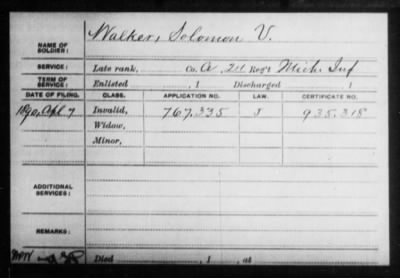 NAME OF SOLDIER: Walker, Solomon V.
SERVICE: Late rank, Co. A, 24 Reg't Mich. Inf
TERM OF SERVICE: Enlisted , 1 Discharged , 1
DATE OF FILING. CLASS. APPLICATION NO. LAW. CERTIFICATE NO.
1890, Apl 7 Invalid, 767.335 935.318
Widow,
Minor,
ADDITIONAL SERVICES:
REMARKS:
Died , 1 , at